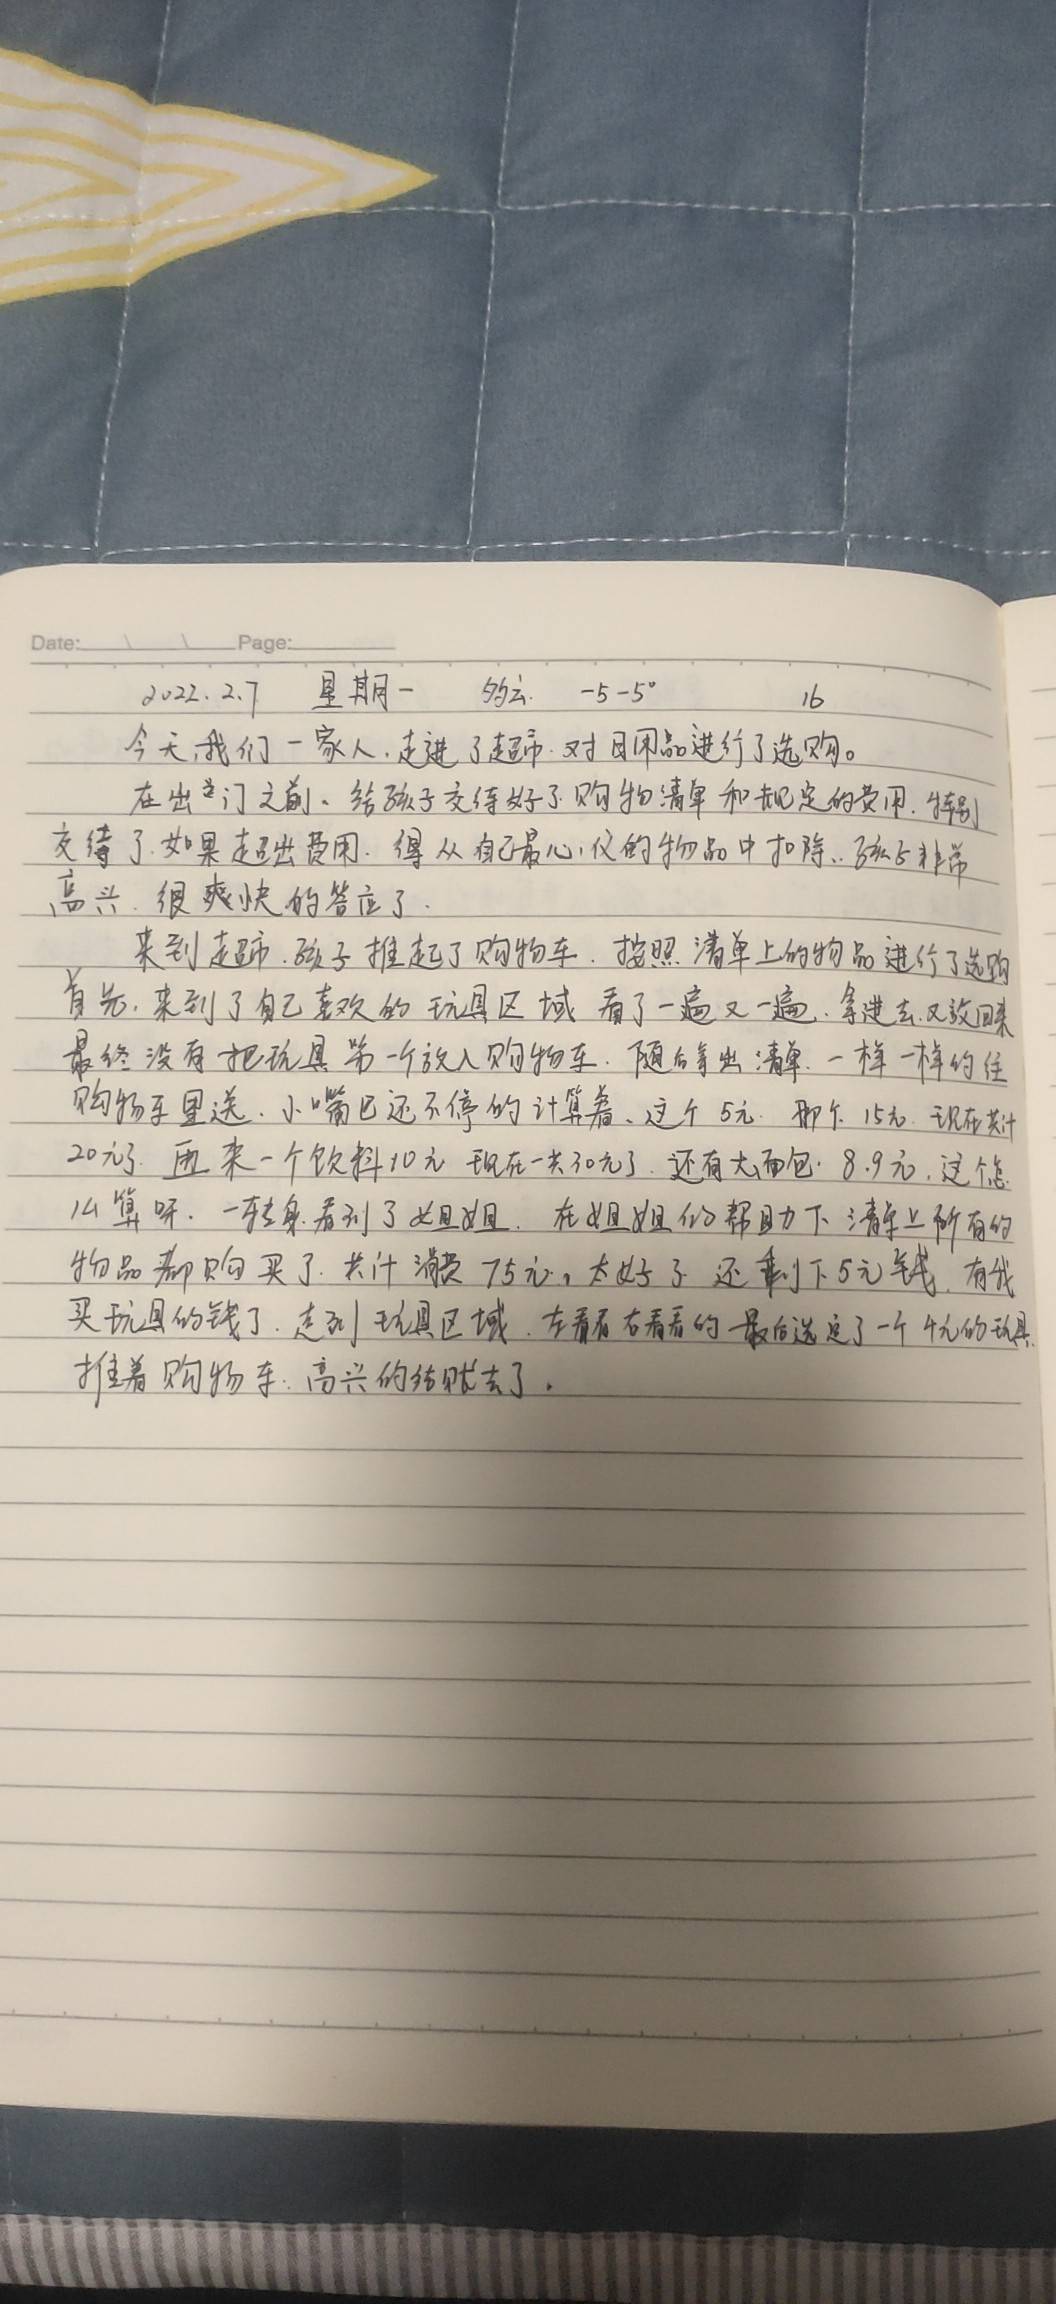 Date: \ \ Page:
2022.2.7 星期一 多云 -5-5° 16
今天,我们一家人.走进了超市.对日用品进行了选购。
在出门之前、给孩子交待好了购物清单和规定的费用.特别
交待了.如果超出费用.得从自己最心仪的物品中扣除..孩子非常
高兴.很爽快的答应了.
来到超市.孩子推起了购物车.按照清单上的物品进行了选购
首先.来到了自己喜欢的玩具区域 看了一遍又一遍.拿进去.又放回来
最终没有把玩具第一个放入购物车.随后拿出清单.一样一样的往
购物车里送.小嘴巴还不停的计算着、这个5元.那个.15元.现在共计
20元了.再来一个饮料10元 现在一共30元了.还有大面包.8.9元.这个怎
么算呀.一转身.看到了姐姐.在姐姐的帮助下 清单上所有的
物品都购买了.共计消费75元,太好了 还剩下5元钱.有我
买玩具的钱了.走到玩具区域.左看看右看看的 最后选定了一个4元的玩具.
推着购物车.高兴的结账去了.